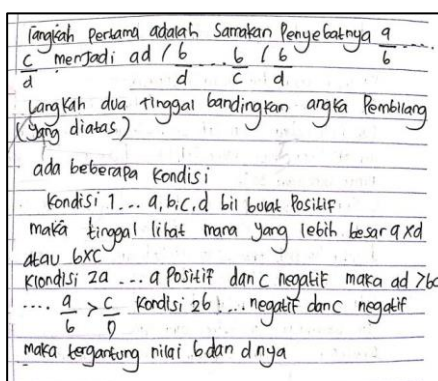 Langkah Pertama adalah Samakan Penyebatnya a/6 ....
c/d menjadi ad / b/d ... b/c / b/d
Langkah dua tinggal bandingkan angka Pembilang
(yang diatas)
ada beberapa Kondisi
Kondisi 1... a,b,c,d bil bulat Positif
maka tinggal lihat mana yang lebih besar axd
atau bxc
Klondisi 2a ... a Positif dan c negatif maka ad >bc
.... a/b > c/D Kondisi 2b ... negatif dan c negatif
maka tergantung nilai b dan d nya